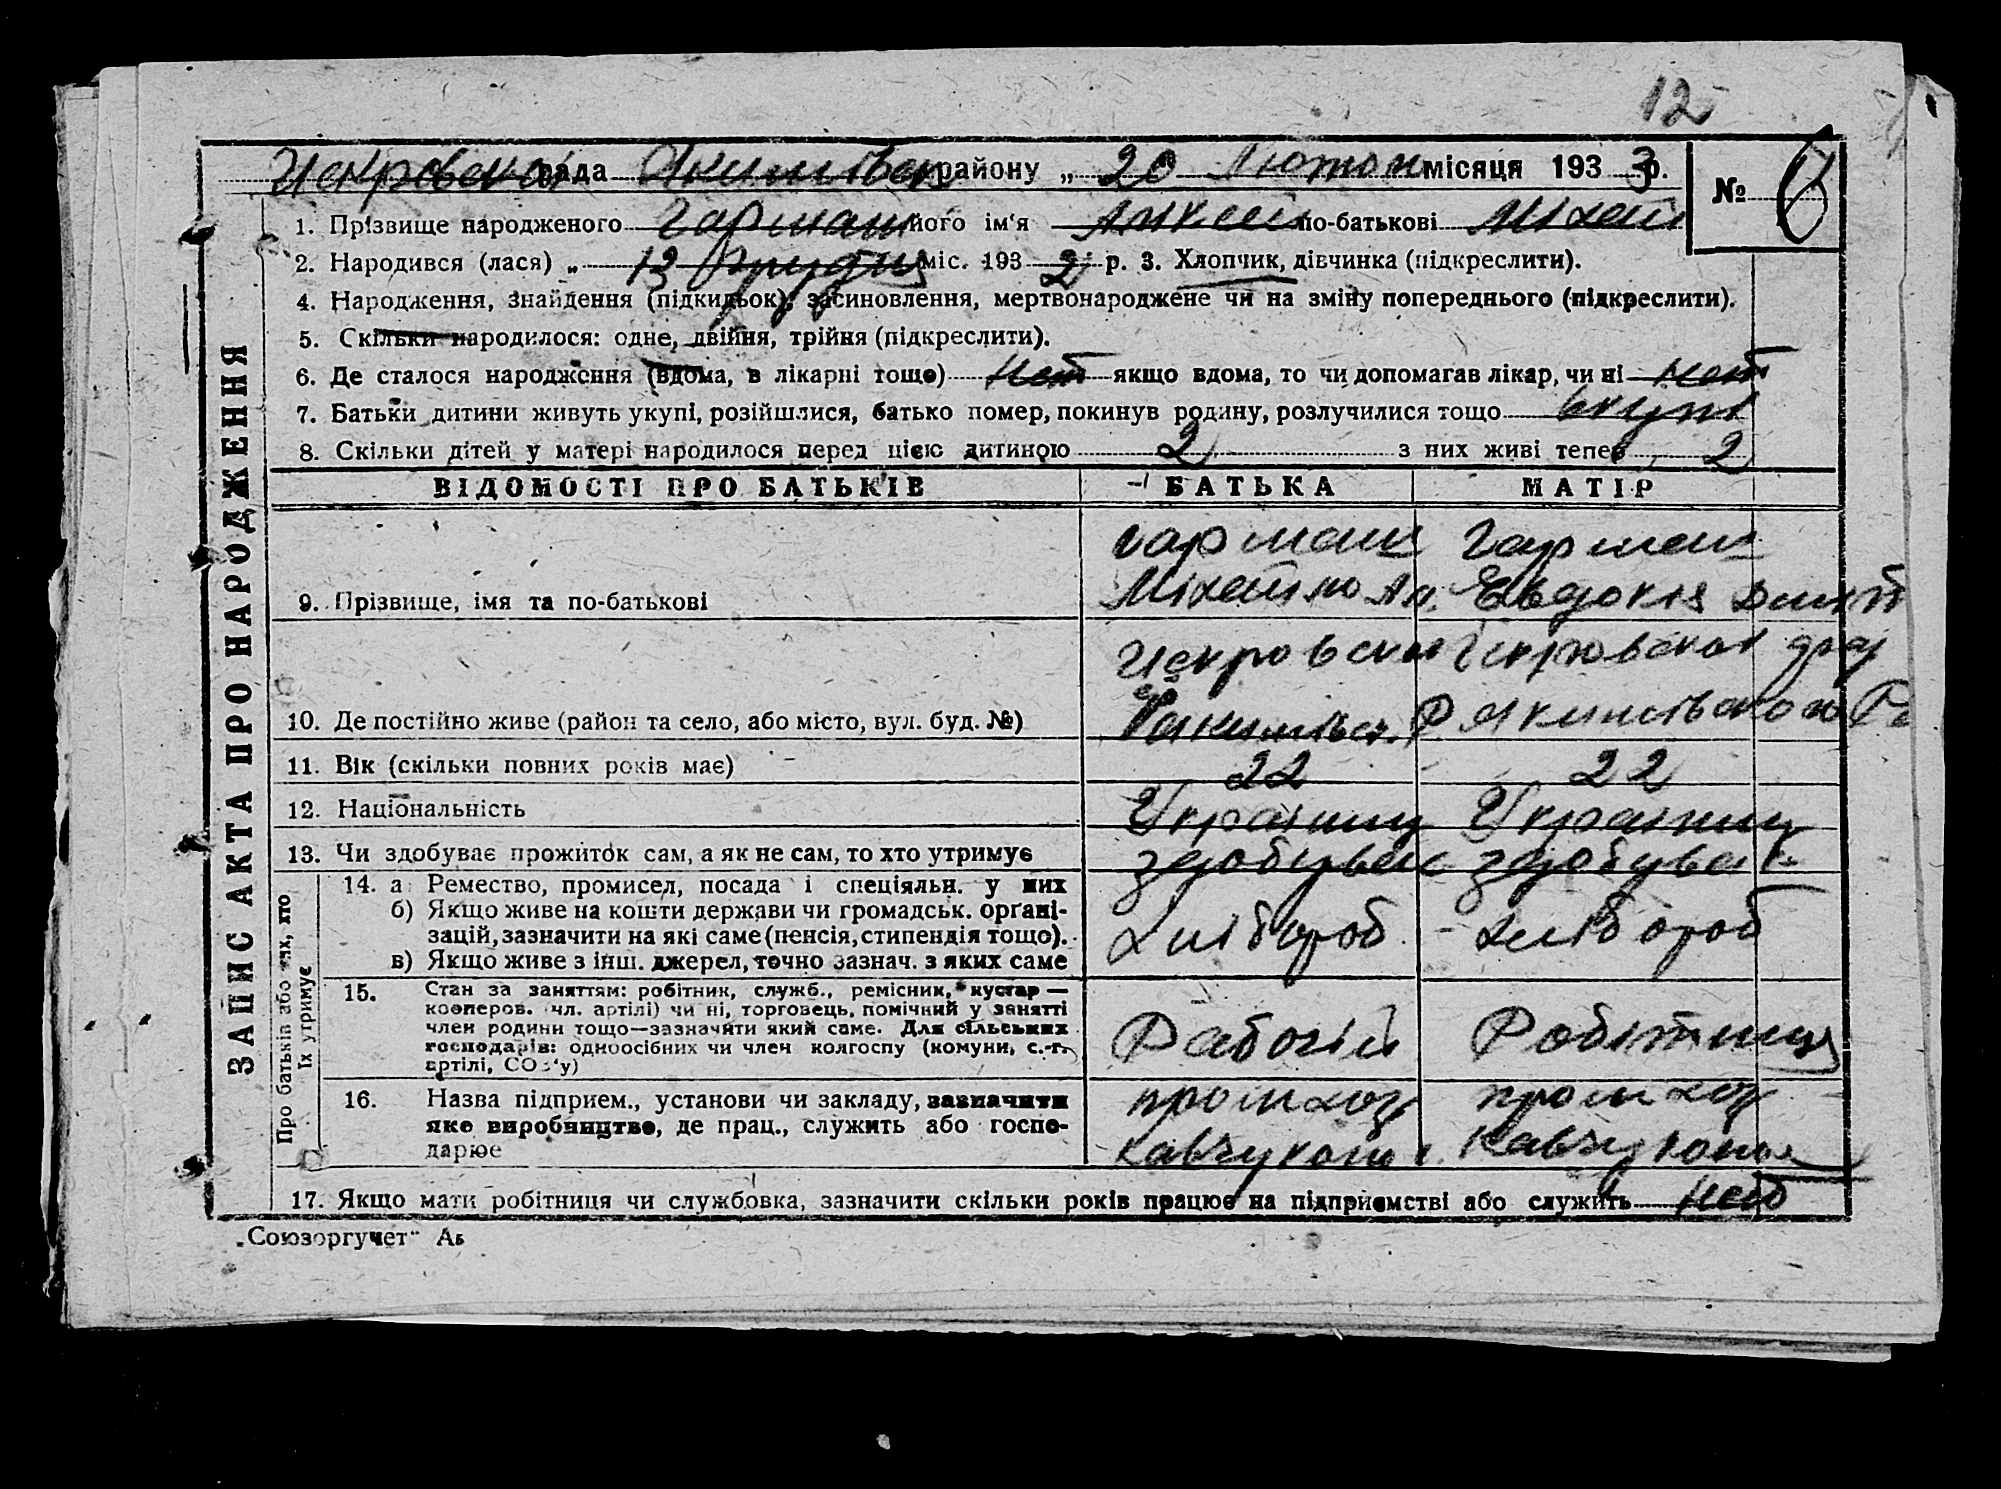 12
Искровская рада Якимівськ району „ 20 Лютого місяця 193 3 р.
№ 6
ЗАПИС АКТА ПРО НАРОДЖЕННЯ
1. Прізвище народженого Гармаш його ім'я по-батькові Міхайл
2. Народився (лася) „ 13 міс. 193 2 р. 3. Хлопчик, дівчинка (підкреслити).
4. Народження, знайдення (підкидьок), засиновлення, мертвонароджене чи на зміну попереднього (підкреслити).
5. Скільки народилося: одне, двійня, трійня (підкреслити).
6. Де сталося народження (вдома, в лікарні тощо) нет якщо вдома, то чи допомагав лікар, чи ні нет
7. Батьки дитини живуть укупі, розійшлися, батько помер, покинув родину, розлучилися тощо вкупі
8. Скільки дітей у матері народилося перед цією дитиною 2 з них живі тепер 2
ВІДОМОСТІ ПРО БАТЬКІВ БАТЬКА МАТІР
Гармаш Гармаш
9. Прізвище, імя та по-батькові Міхайло Евдокія
Искровская
10. Де постійно живе (район та село, або місто, вул. буд. №) Якимівськ. Р. Якимівского
11. Вік (скільки повних років має) 22 22
12. Національність Українец Українец
13. Чи здобуває прожиток сам, а як не сам, то хто утримує здобуває здобуває
Про батьків або них, хто їх утримує
14. а Ремество, промисел, посада і спеціяльн. у них
б) Якщо живе на кошти держави чи громадськ. органі-
зацій, зазначити на які саме (пенсія, стипендія тощо). хлібороб хлібороб
в) Якщо живе з інш. джерел, точно зазнач. з яких саме
15. Стан за заняттям: робітник, служб., ремісник, кустар —
кооперов. чл. артілі) чи ні, торговець, помічний у занятті
член родини тощо—зазначити який саме. Для сільських
господарів: одноосібних чи член колгоспу (комуни, с.-г. Рабочій Робітниця
артілі, СОЗ'у)
16. Назва підприєм., установи чи закладу, зазначити промхоз промхоз
яке виробництво, де прац., служить або госпо-
дарює
17. Якщо мати робітниця чи службовка, зазначити скільки років працює на підприємстві або служить нет
„Союзоргучет"